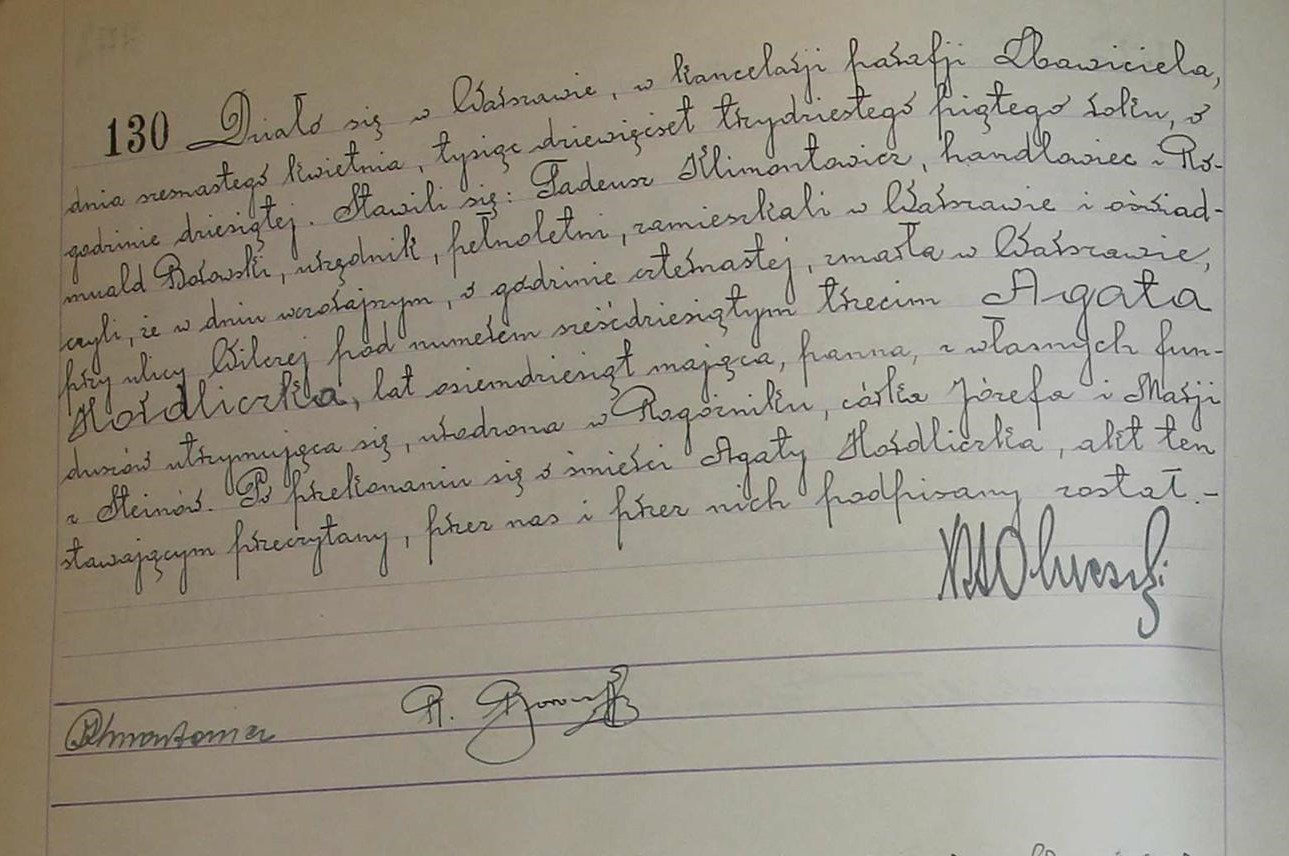 130 Działo się w Warszawie, w kancelarji parafji Zbawiciela,
dnia szesnastego kwietnia, tysiąc dziewięćset trzydziestego piątego roku, o
godzinie dziesiątej. Stawili się: Tadeusz Klimontowicz, handlowiec i Ro-
muald Borowski, urzędnik, pełnoletni, zamieszkali w Warszawie i oświad-
czyli, że w dniu wczorajszym, o godzinie czternastej, zmarła w Warszawie,
przy ulicy Wilczej pod numerem sześćdziesiątym trzecim Agata
Hordliczka, lat osiemdziesiąt mająca, panna, z własnych fun-
duszów utrzymująca się, urodzona w Rogoźniku, córka Józefa i Marji
z Steinów. Po przekonaniu się o śmierci Agaty Hordliczka, akt ten
stawającym przeczytany, przez nas i przez nich podpisany został.-
R. Borowski